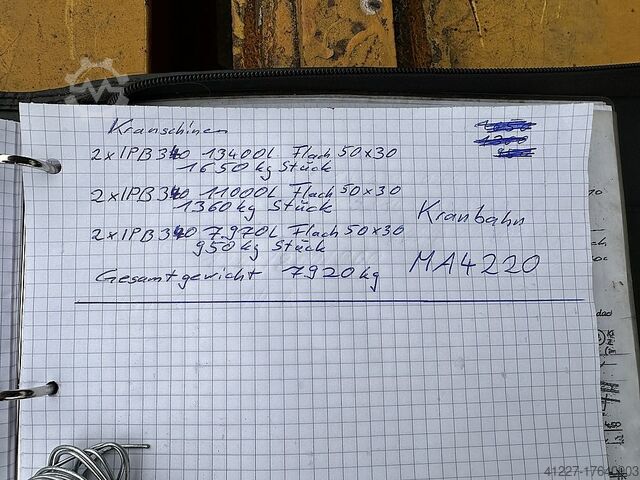 Kranschinen
2x IPB 340 13400L Flach 50x30
1650 kg Stück
2x IPB 340 11000L Flach 50x30
1360 kg Stück
2x IPB 340 7.970L Flach 50x30
950 kg Stück
Gesamtgewicht 7920 kg
Kranbahn
MA4220
41227-17640903